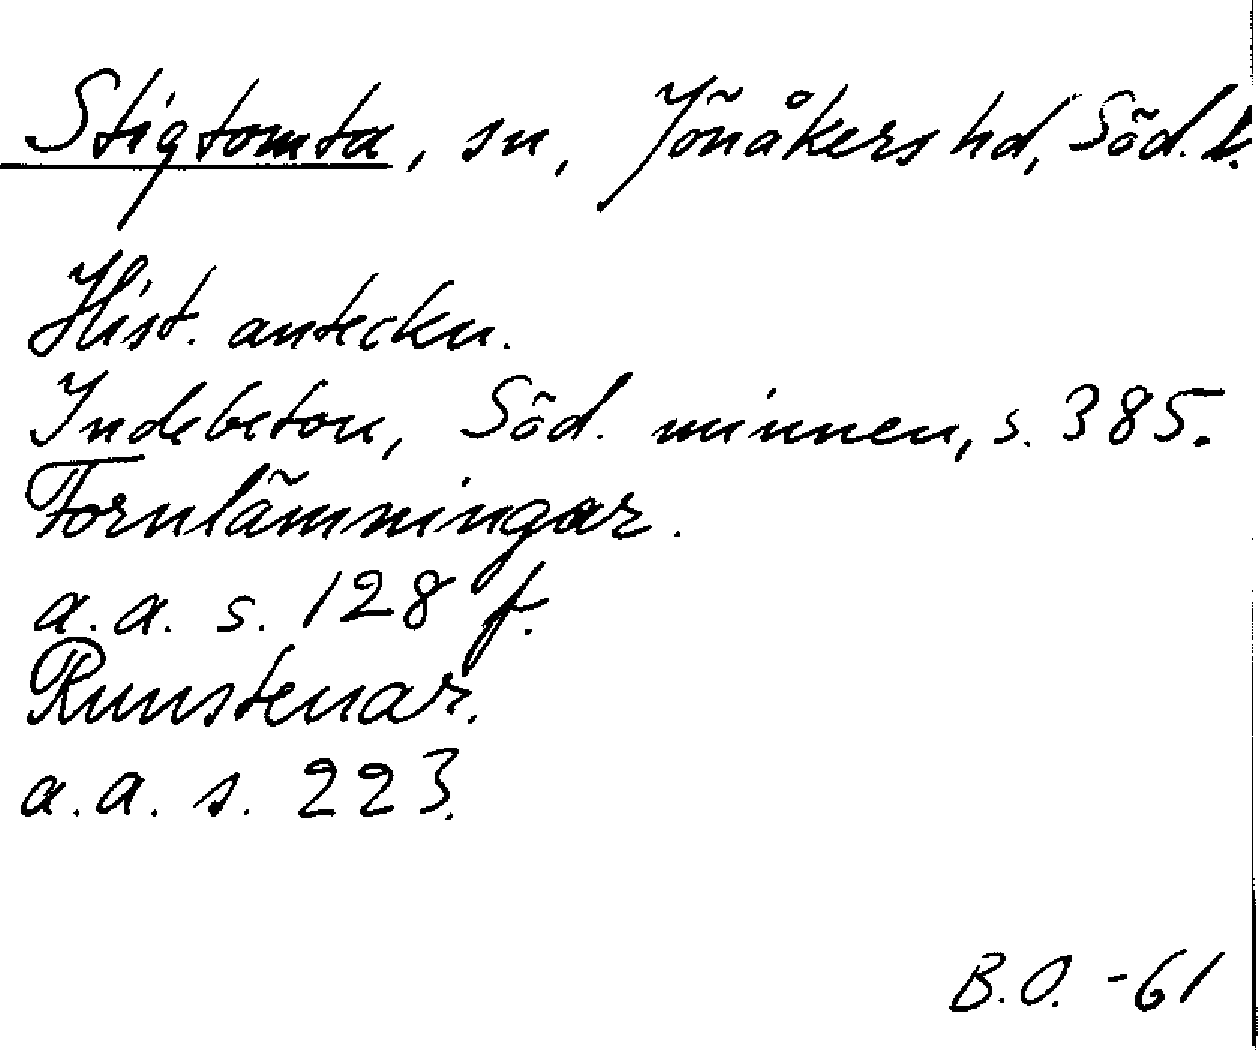 Stigtomta, sn, Jönåkers hd, Söd. l.
Hist. anteckn.
Indebetou, Söd. minnen, s. 385.
Fornlämningar.
a.a. s. 128 f.
Runstenar.
a.a. s. 223.
B.O. -61